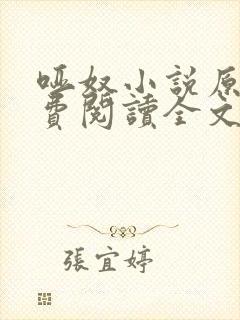 啞奴小說原
費閱讀全文
張宜婷